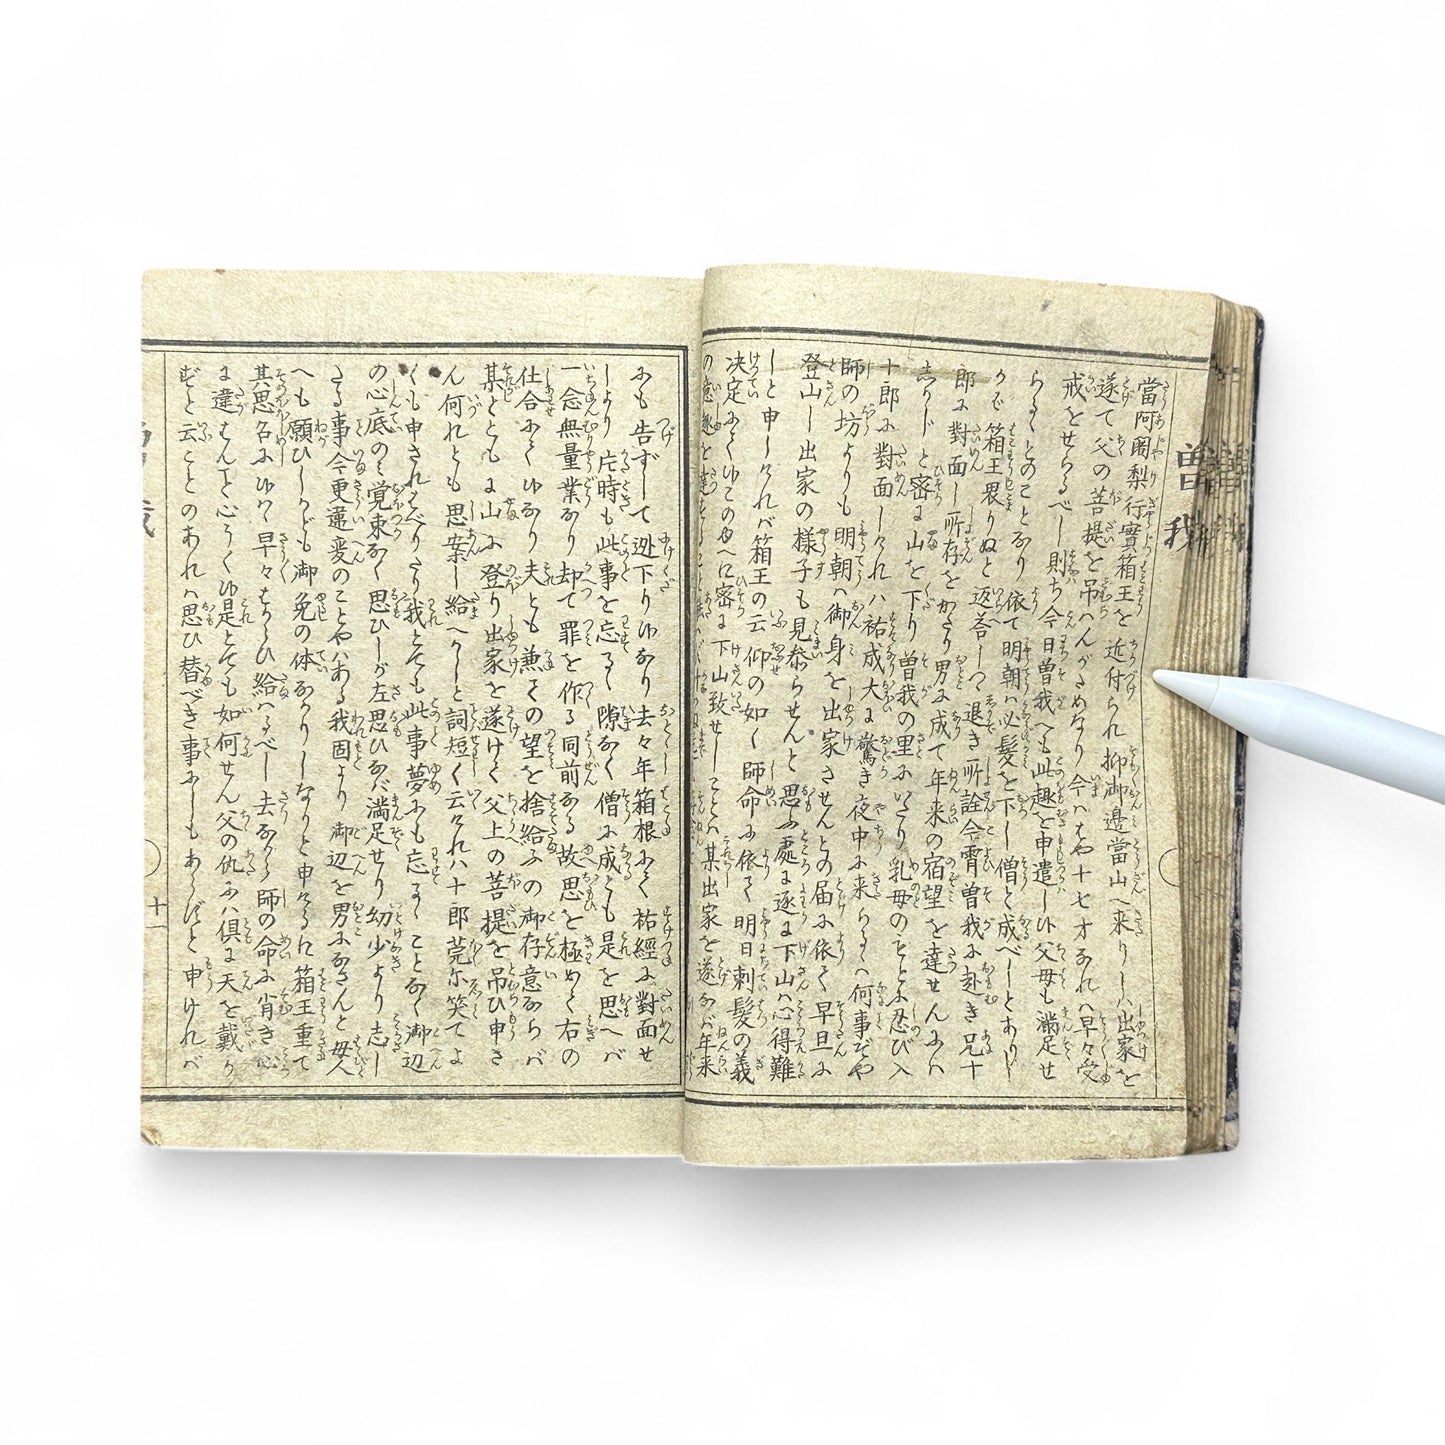 當阿闍梨行實箱王を近付られ抑御邊當山へ来りしハ出家を
遂て父の菩提を吊ハんがためなり今ハはや十七才なれハ早々受
戒をせらるべし則ち今日曽我へも此趣を申遣し㕝父母も満足せ
らるゝとのことなり依て明朝ハ必髪を下し僧と成べしとありし
かバ箱王畏りぬと返荅しつゝ退き所詮今宵曽我に赴き兄十
郎に對面し所存をかたり男に成て年来の宿望を達せんにハ
しかじと密に山を下り曽我の里にいたり乳母のもとに忍び入
十郎に對面しけれハ祐成大に驚き夜中に来らるゝハ何事ぞや
師の坊よりも明朝ハ御身を出家させんとの届に依て早旦に
登山し出家の様子も見参らせんと思ふ處に遂に下山ハ心得難
しと申しけれバ箱王の云仰の如く師命に依て明日剃髪の義
决定にて㕝このゆへに密に下山致せしことハ某出家を遂なバ年来
にも告ずして逃下り㕝なり去々年箱根にて祐經に對面せ
しより片時も此事を忘るゝ隙なく僧に成とも是を思へバ
一念無量業なり却て罪を作る同前なる故思を極めて右の
仕合にて㕝なり夫とも兼ての望を捨給ふの御存意ならバ
某とともに山に登り出家を遂けて父上の菩提を吊ひ申さ
ん何れとも思案し給へかしと詞短く云けれハ十郎莞尓笑てよ
くも申されはべりたり我とても此事夢にも忘るゝことなく御辺
の心底のミ覚束なく思ひしが左思ひなバ満足せり幼少より志し
たる事今更違変のことやハある我固より御辺を男になさんと母人
へも願ひしかども御免の体なかりしなりと申けるに箱王重て
其思召に㕝ハヾ早々はからひ給ハるべし去ながら師の命に背き心
に違はんこと心うく㕝是とても如何せん父の仇にハ倶に天を戴か
ずと云ことのあれハ思ひ替べき事にしもあらずと申けれバ
曽我
十一